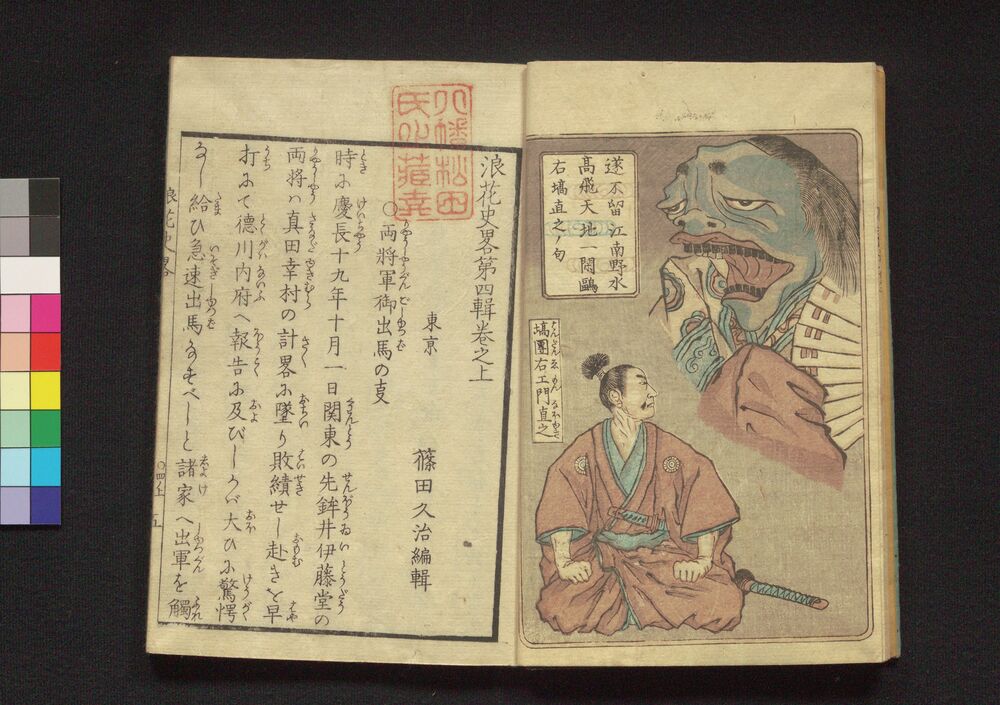 遂不留江南野水
高飛天地一閑鷗
右塙直之ノ句
塙團右エ門直之
浪花史畧第四輯巻之上
東京 篠田久治編輯
○両將軍御出馬の叓
時に慶長十九年十月一日関東の先鉾井伊藤堂の
両將ハ真田幸村の計畧に墜り敗績せし赴きを早
打にて德川内府へ報告に及びしかバ大ひに驚愕
なし給ひ急速出馬なすべしと諸家へ出軍を觸
浪花史畧
八幡松田
氏小藏